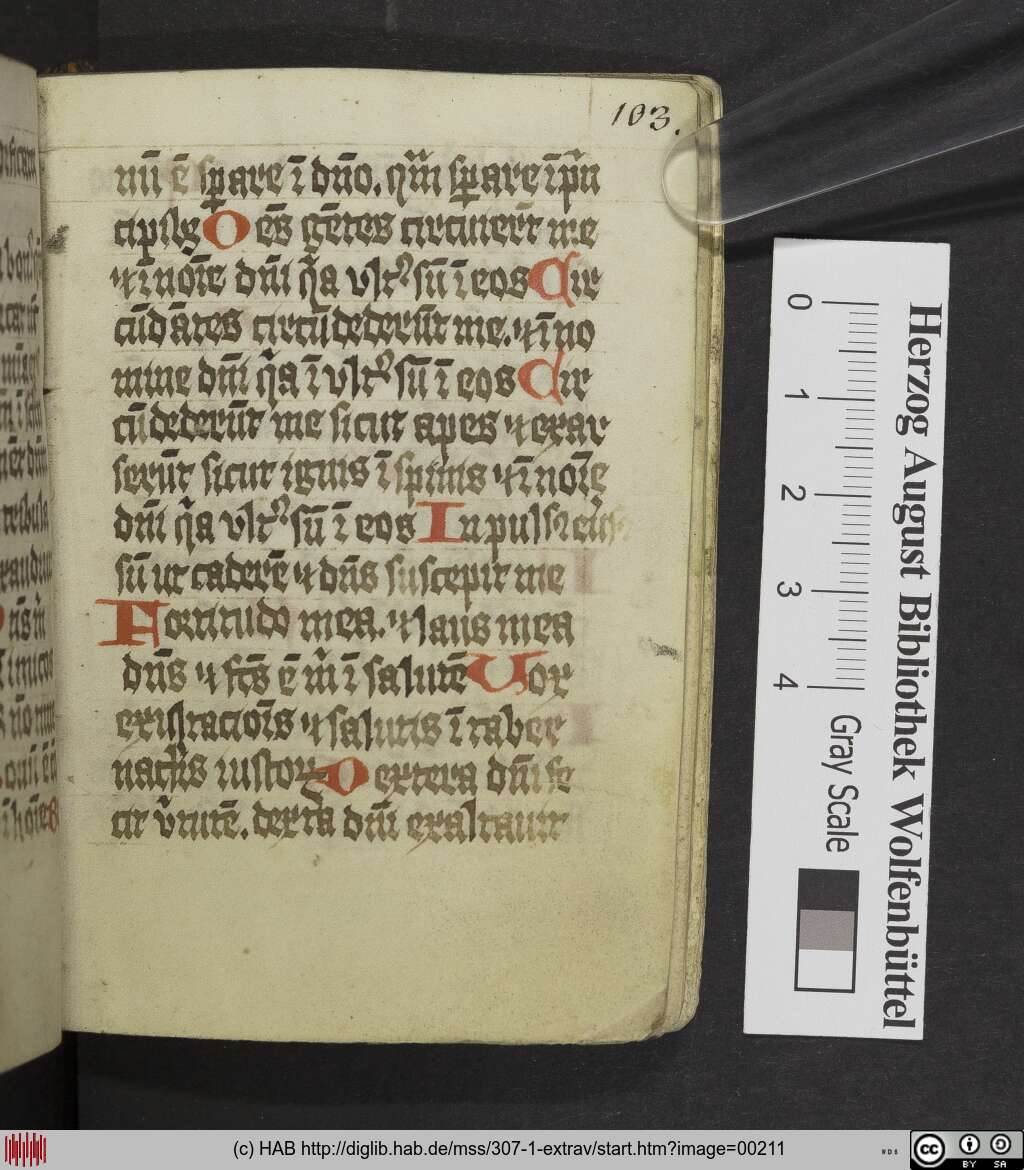 103.
nū ē sp̱are ī dn̄o. qm̄ sp̱are ī p̄n
cipibꝫ Oēs gētes circuiert̄ me
⁊ ī nōīe dn̄i q̄a vlt᷒ sū ī eos Cir
cūdātes circūdederūt me. ⁊ ī no
mine dn̄i q̄a ī vlt᷒ sū ī eos Cir
cūdederūt me sicut apes ⁊ exar
serūt sicut ignis ī spinis ⁊ ī nōīe
dn̄i q̄a vlt᷒ sū ī eos Inpulsꝰ
sū ut caderē ⁊ dn̄s suscepit me
Fortitudo mea. ⁊ laus mea
dn̄s ⁊ fcs̄ ē m̄ ī salutē Vox
exultacioīs ⁊ salutis ī taber
nacl̄is iustoꝝ Dextera dn̄i fe
cit v̄tutē. dext̄a dn̄i exaltauit
Herzog August Bibliothek Wolfenbüttel
0 1 2 3 4
Gray Scale
(c) HAB http://diglib.hab.de/mss/307-1-extrav/start.htm?image=00211
cc BY SA